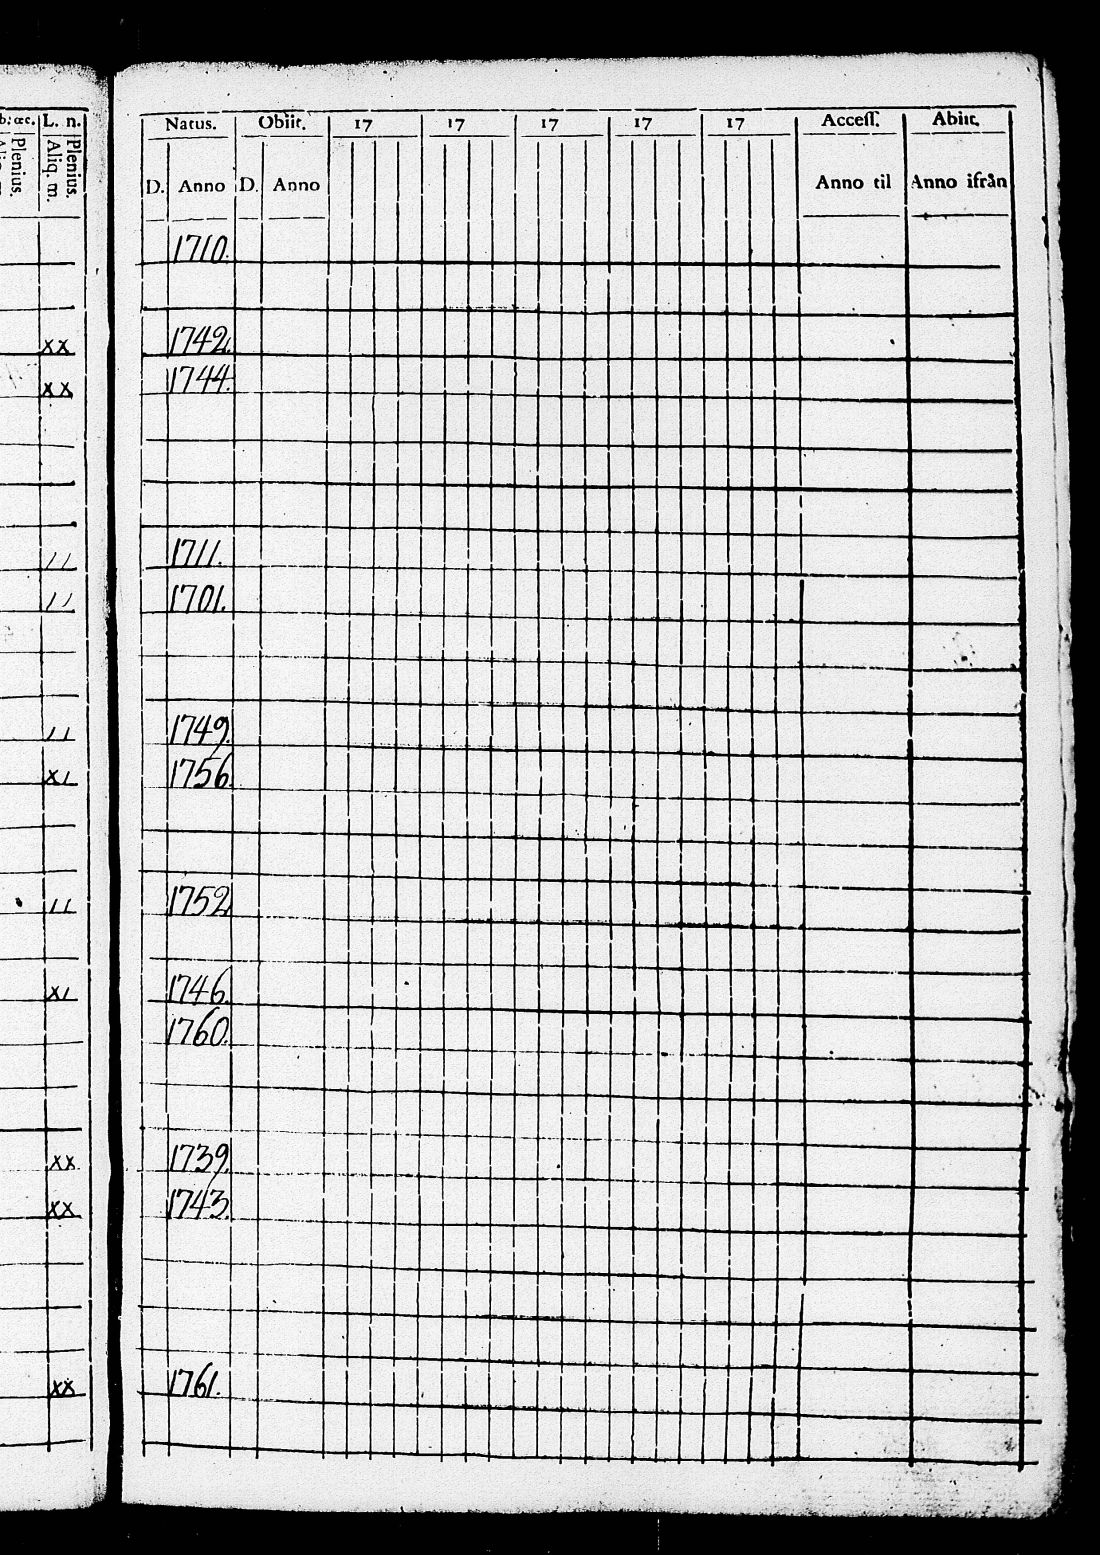 b: œc. L. n.
Plenius. Aliq. m. Plenius.
Natus. Obiit. 17 17 17 17 17 Access. Abiit.
D. Anno D. Anno Anno til Anno ifrån
1710.
xx 1742.
xx 1744.
11 1711.
11 1701.
11 1749.
x1 1756.
11 1752
x1 1746.
1760.
xx 1739.
xx 1743.
xx 1761.